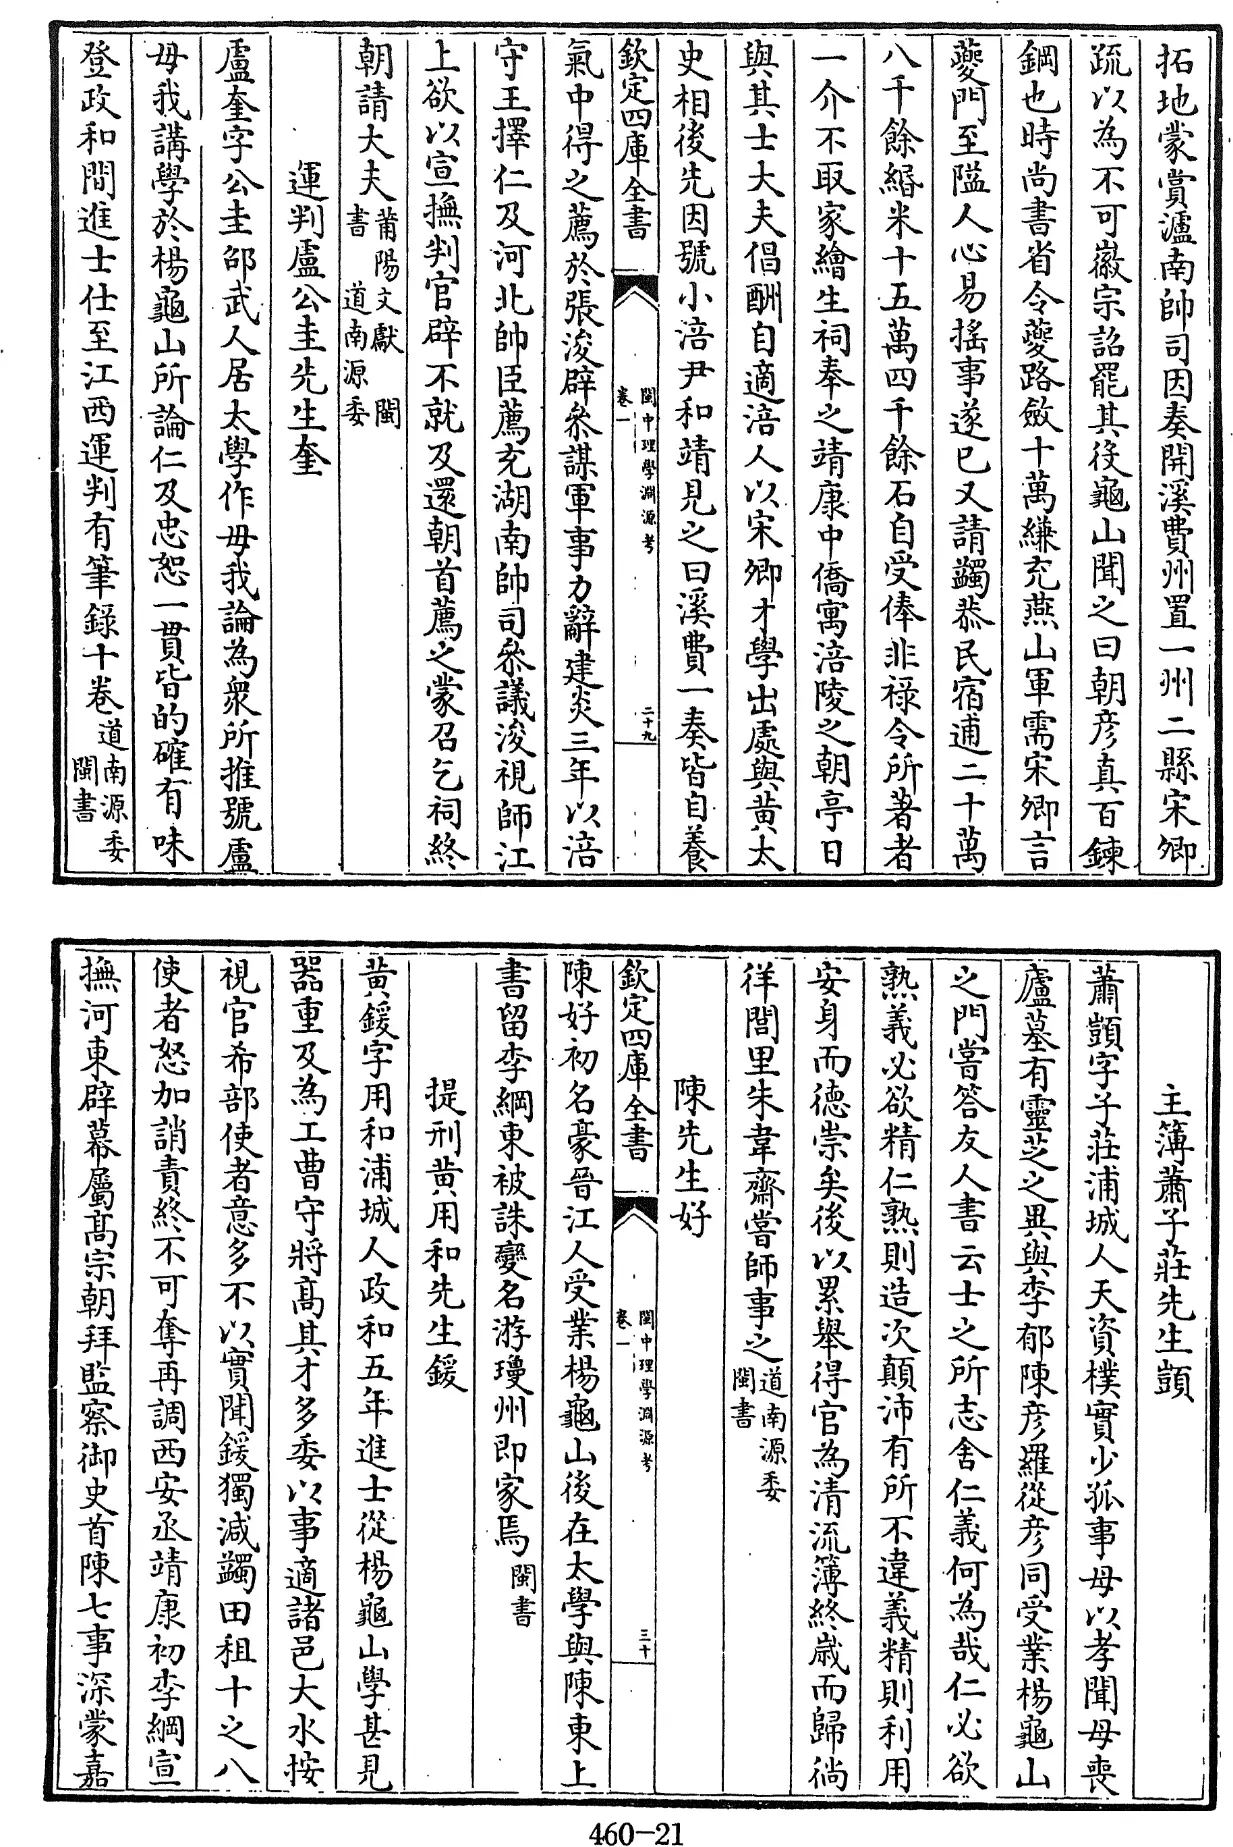 拓地蒙賞瀘南帥司因奏開溪費州置一州二縣宋卿
疏以為不可徽宗詔罷其役龜山聞之曰朝彥真百鍊
鋼也時尚書省令夔路斂十萬縑充燕山軍需宋卿言
夔門至隘人心易搖事遂已又請蠲恭民宿逋二十萬
八千餘緡米十五萬四千餘石自受俸非祿令所著者
一介不取家繪生祠奉之靖康中僑寓涪陵之朝亭日
與其士大夫倡酬自適涪人以宋卿才學出處與黃太
史相後先因號小涪尹和靖見之曰溪費一奏皆自養
欽定四庫全書
閩中理學淵源考
卷一
二十九
氣中得之薦於張浚辟叅謀軍事力辭建炎三年以涪
守王擇仁及河北帥臣薦充湖南帥司叅議浚視師江
上欲以宣撫判官辟不就及還朝首薦之蒙召乞祠終
朝請大夫莆陽文獻 閩書 道南源委
運判盧公圭先生奎
盧奎字公圭邵武人居太學作毋我論為衆所推號盧
毋我講學於楊龜山所論仁及忠恕一貫皆的確有味
登政和間進士仕至江西運判有筆錄十卷道南源委 閩書
主簿蕭子莊先生顗
蕭顗字子莊浦城人天資樸實少孤事母以孝聞母喪
廬墓有靈芝之異與李郁陳彥羅從彥同受業楊龜山
之門嘗答友人書云士之所志舍仁義何為哉仁必欲
熟義必欲精仁熟則造次顛沛有所不違義精則利用
安身而德崇矣後以累舉得官為清流簿終歲而歸徜
徉閭里朱韋齋嘗師事之道南源委 閩書
陳先生好
欽定四庫全書
閩中理學淵源考
卷一
三十
陳好初名豪晉江人受業楊龜山後在太學與陳東上
書留李綱東被誅變名游瓊州即家焉閩書
提刑黃用和先生鍰
黃鍰字用和浦城人政和五年進士從楊龜山學甚見
器重及為工曹守將高其才多委以事適諸邑大水按
視官希部使者意多不以實聞鍰獨減蠲田租十之八
使者怒加誚責終不可奪再調西安丞靖康初李綱宣
撫河東辟幕屬高宗朝拜監察御史首陳七事深蒙嘉
460-21